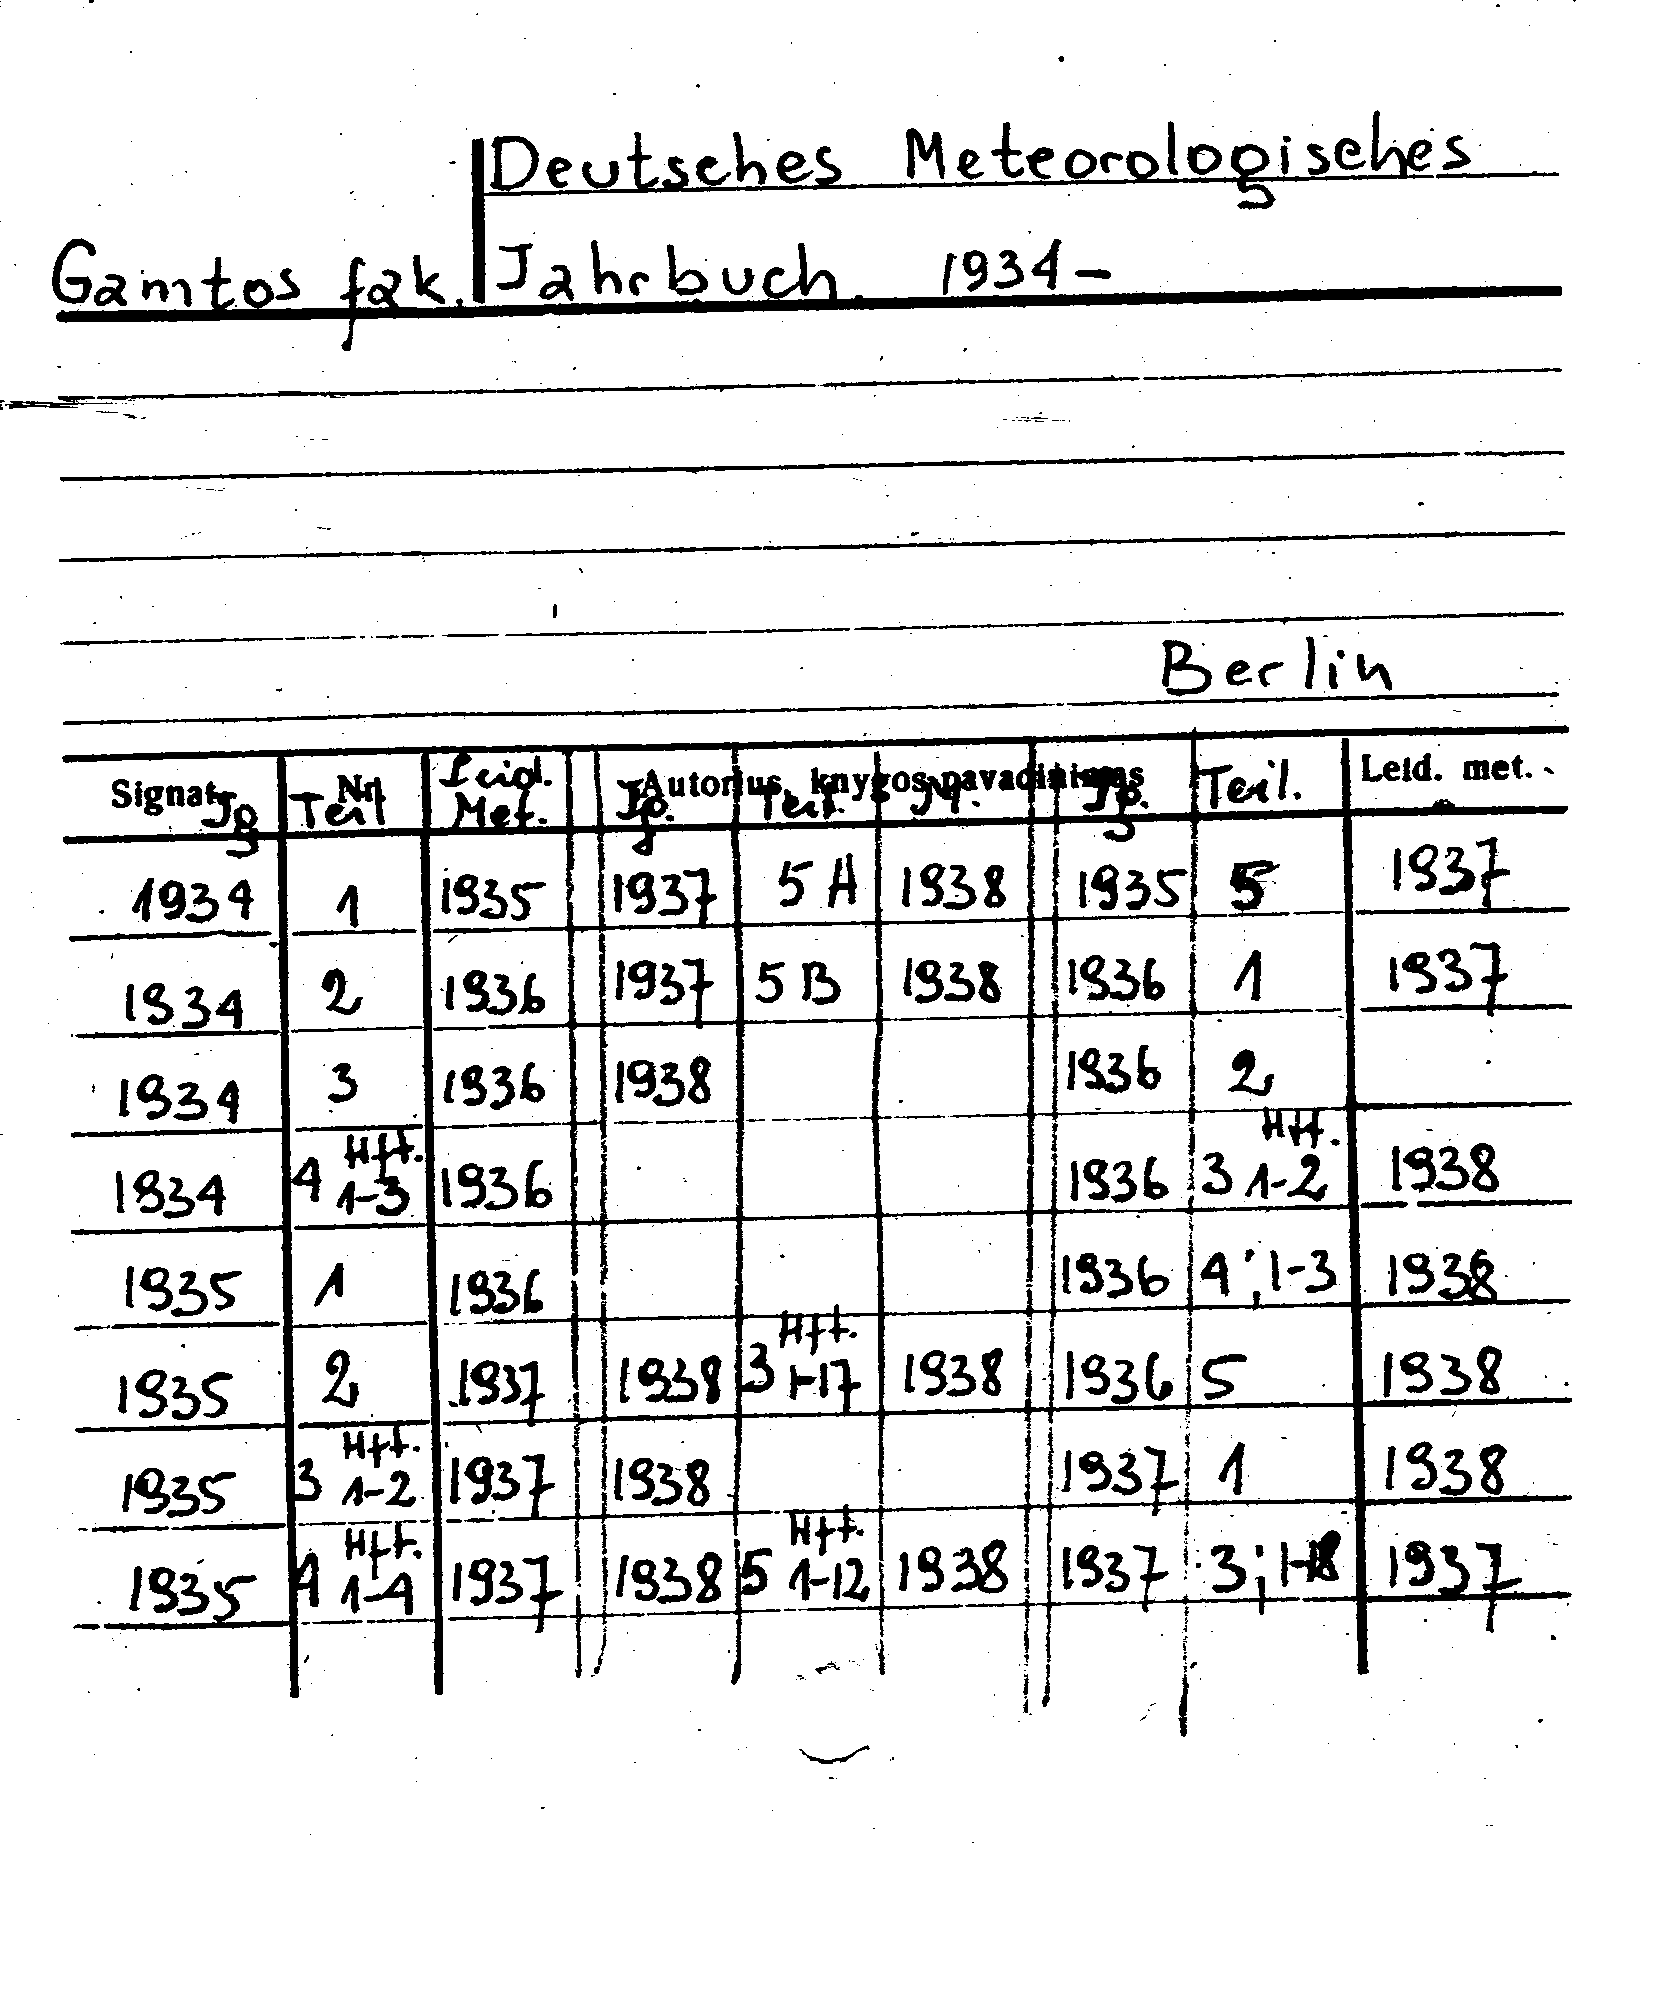 Deutsches Meteorologisches
Gamtos fak. Jahrbuch 1934 –
Berlin
Signat. Nr. Autorius, knygos pavadinimas Leid. met.
Jg Teil Leid. Met. Jg. Teil. M. Jg. Teil.
1934 1 1935 1937 5 A 1938 1935 5 1937
1934 2 1936 1937 5 B 1938 1936 1 1937
1934 3 1936 1938 1936 2
1934 4 Hft. 1-3 1936 1936 3 Hft. 1-2 1938
1935 1 1936 1936 4; 1-3 1938
1935 2 1937 1938 3 Hft. 1-17 1938 1936 5 1938
1935 3 Hft. 1-2 1937 1938 1937 1 1938
1935 4 Hft. 1-4 1937 1938 5 Hft. 1-12 1938 1937 3; 1-18 1937